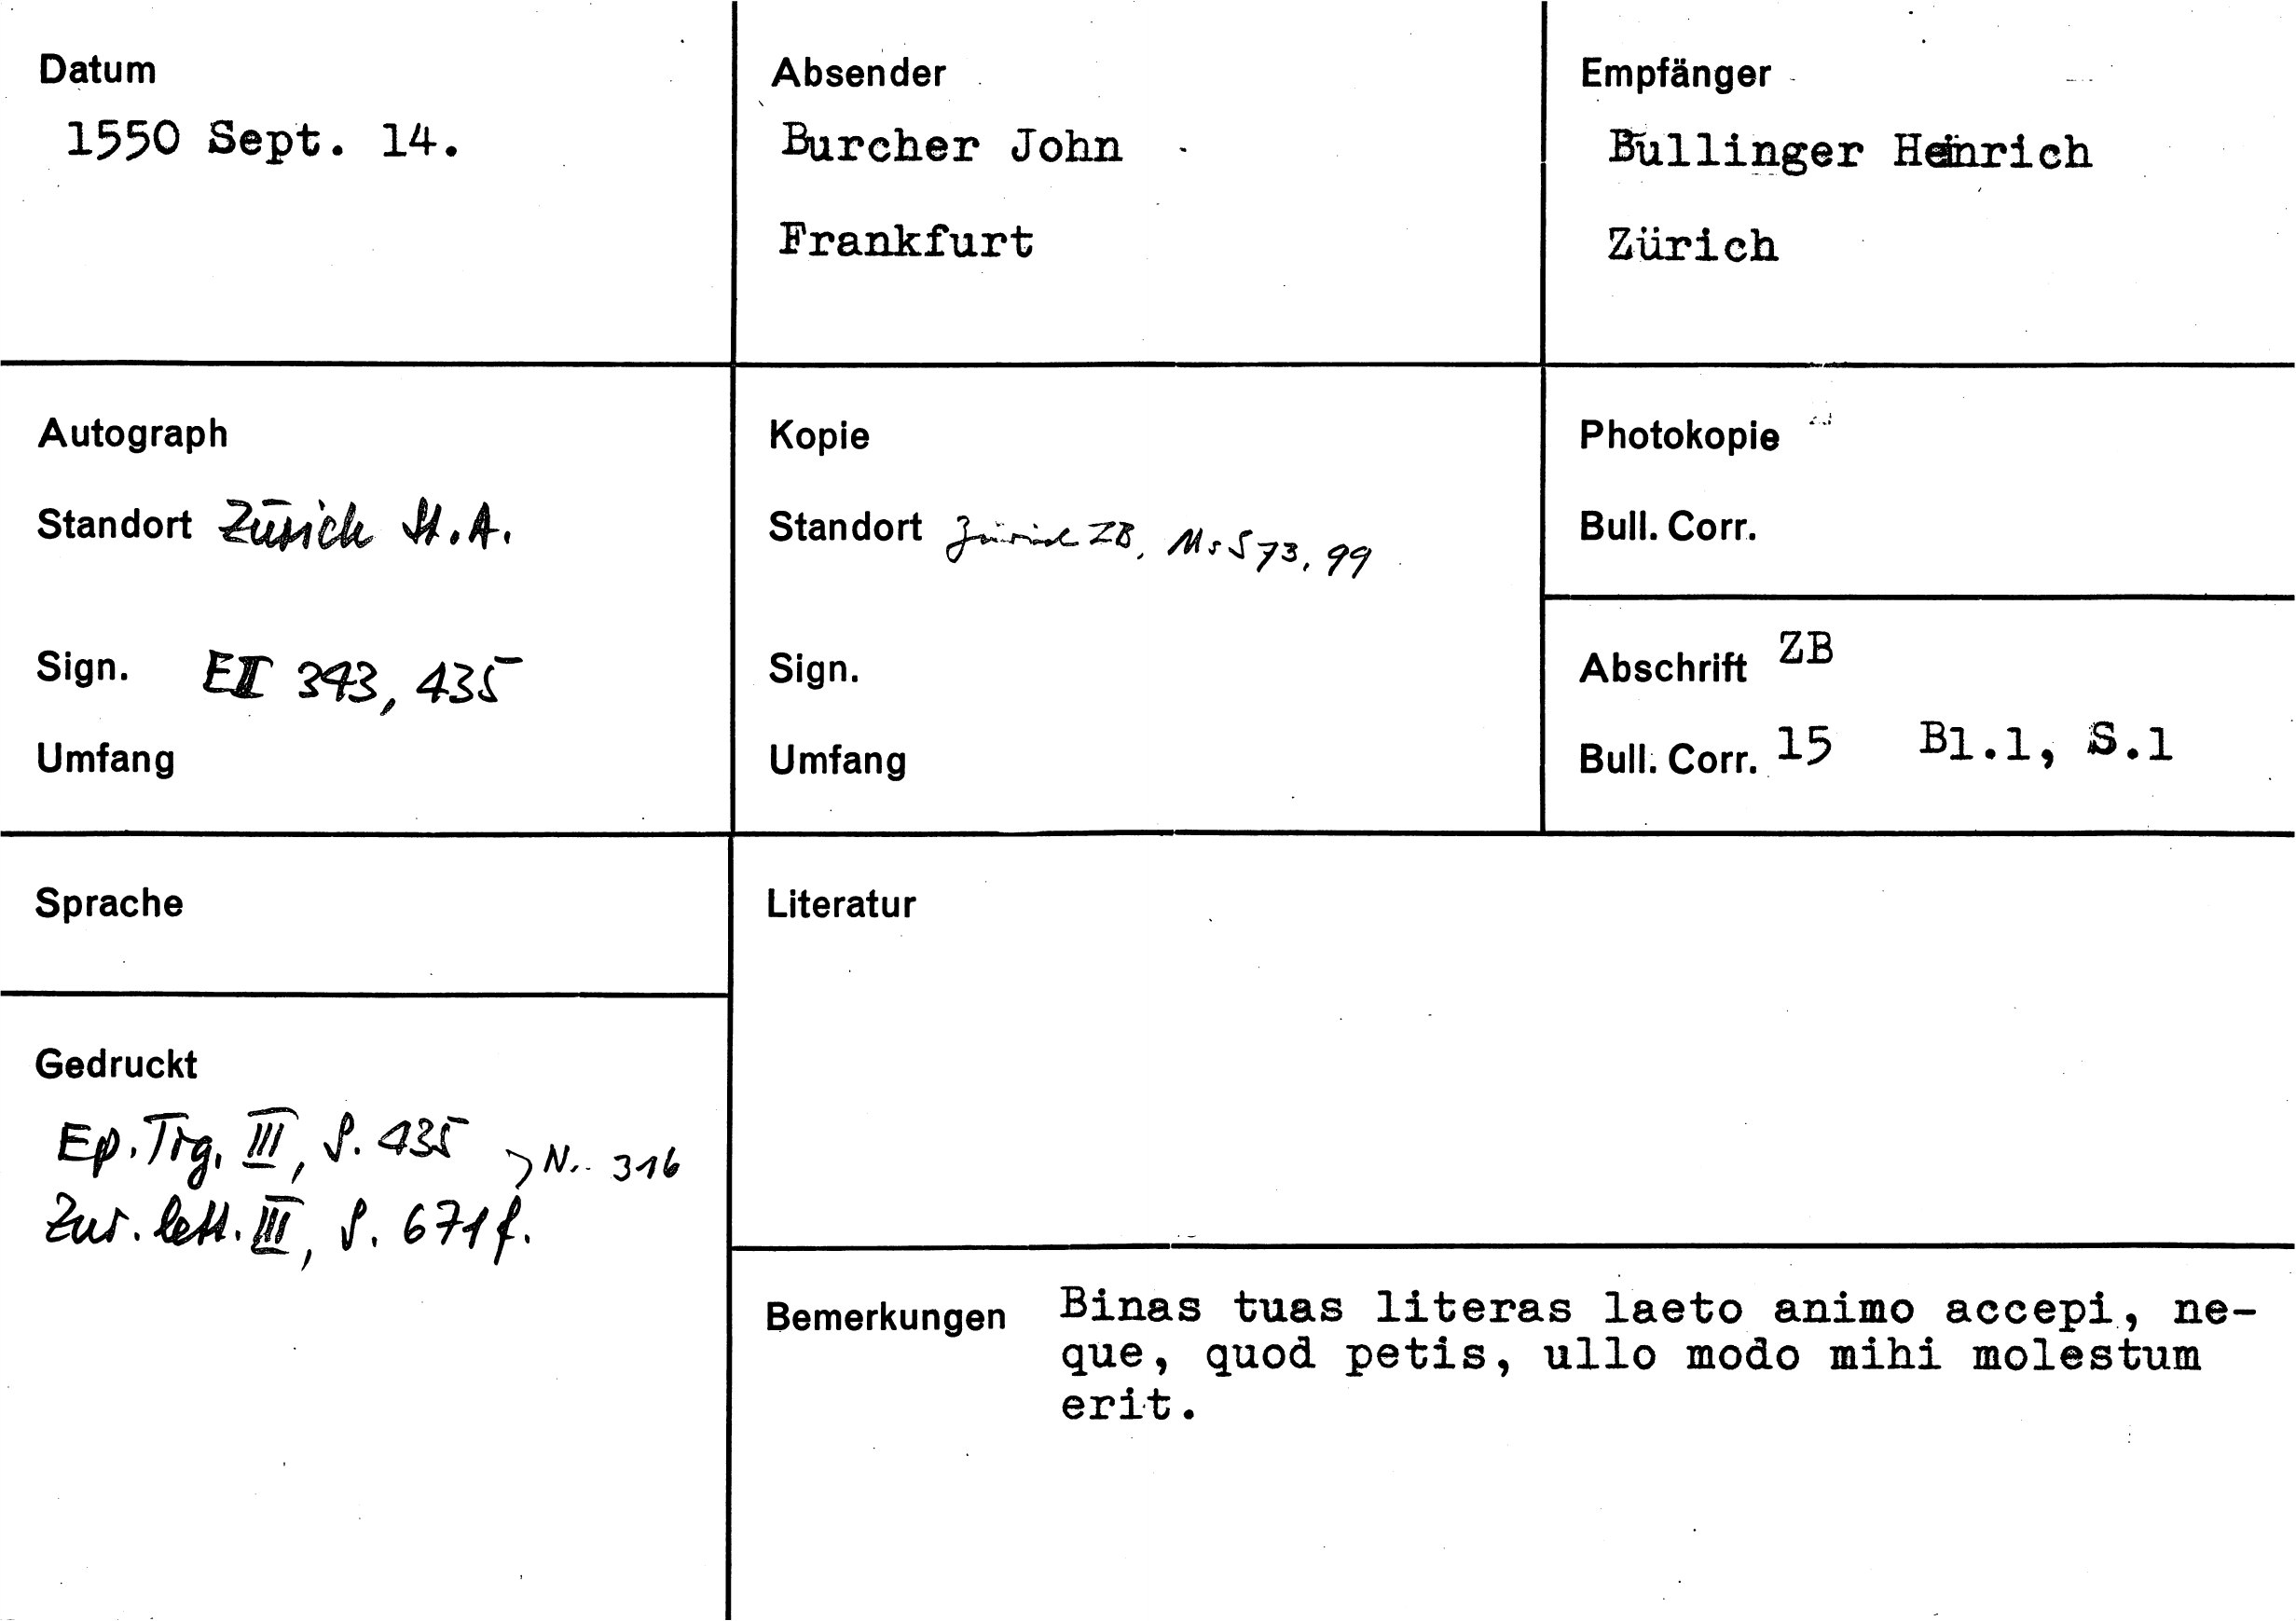 Datum
1550 Sept. 14.
Absender
Burcher John
Frankfurt
Empfänger
Bullinger Heinrich
Zürich
Autograph
Standort Zürich St.A.
Sign. EII 343, 435
Umfang
Kopie
Standort Zürich ZB, Ms S 73, 99
Sign.
Umfang
Photokopie
Bull. Corr.
Abschrift ZB
Bull. Corr. 15 Bl.1, S.1
Sprache
Literatur
Gedruckt
Ep. Tig. III, S. 435
Nr. 316
Zur. lett. III, S. 671f.
Bemerkungen Binas tuas literas laeto animo accepi, ne-
que, quod petis, ullo modo mihi molestum
erit.